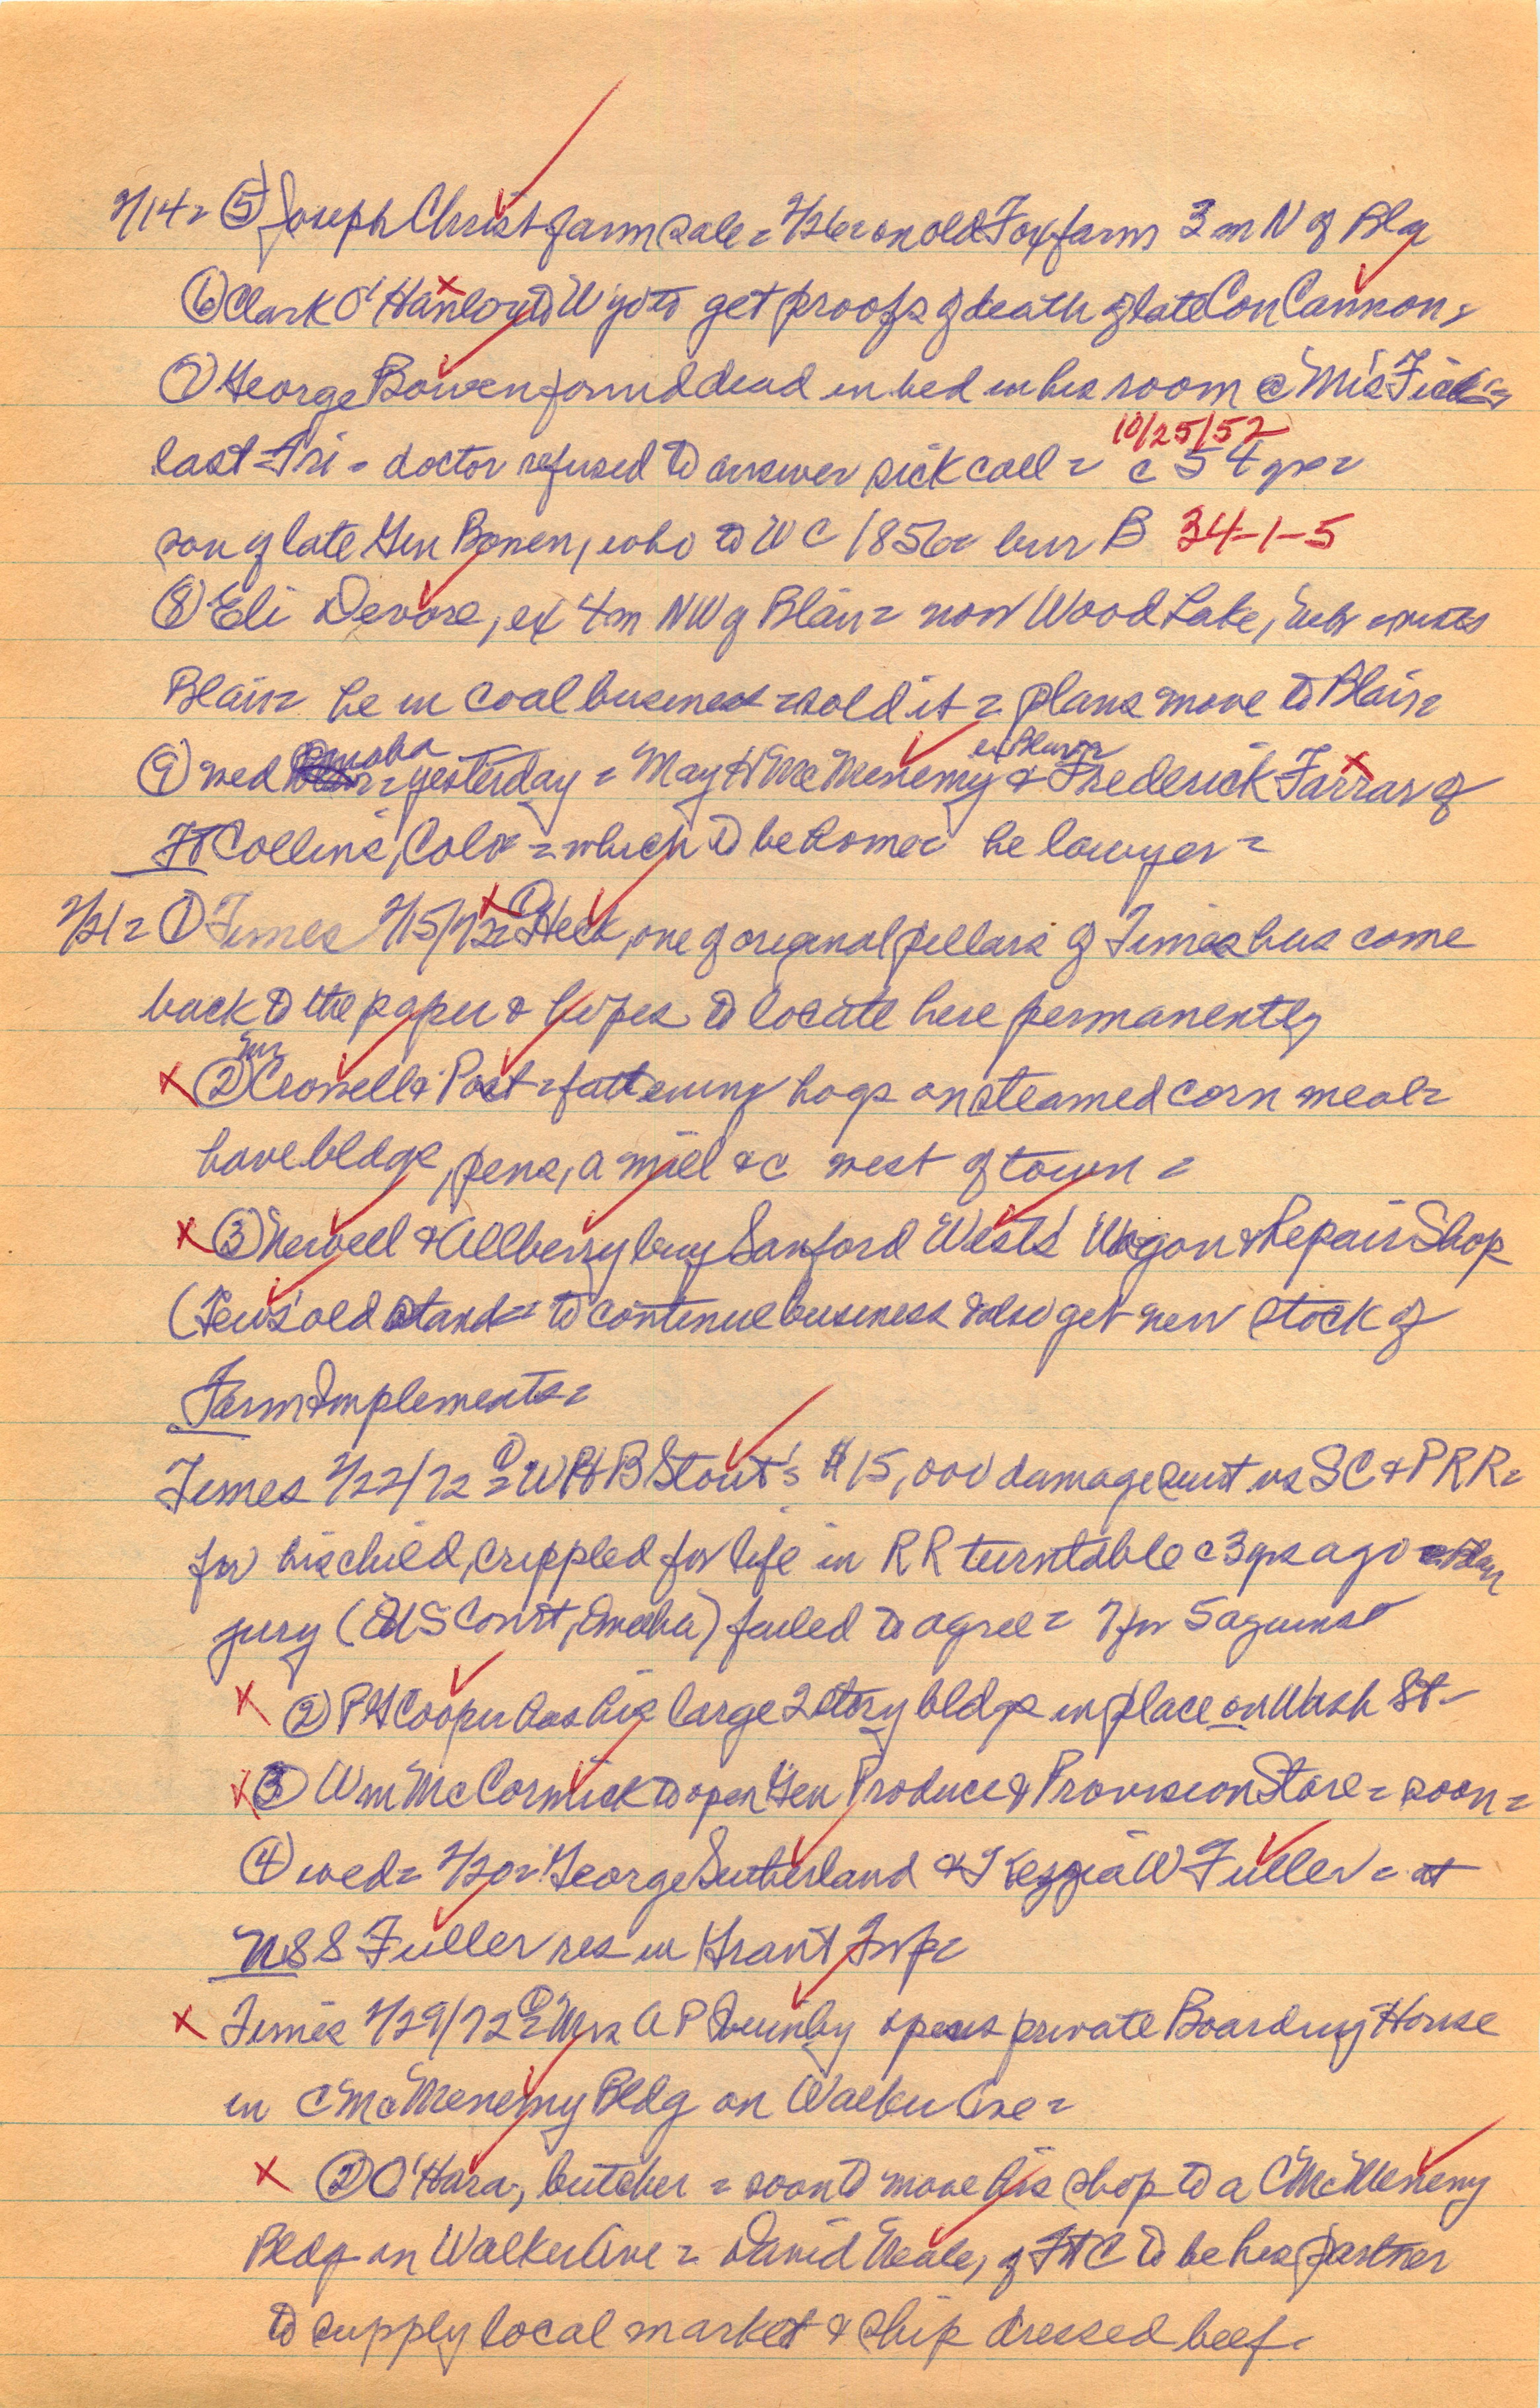 2/14= ⑤ Joseph Christ farm sale = 2/26= on old Fox farm 3 m N of Bla
⑥ Clark O'Hanlon to Wyo to get proofs of death of late Con Cannon =
⑦ George Bowen found dead in bed in his room @ Mrs
10/25/52
last Fri = doctor refused to answer sick call = c 54 yrs =
son of late Gen Bowen, who to W C 1856= bur B 34-1-5
⑧ Eli Devore, ex 4m NW of Blair = now Wood Lake, Neb visits
Blair = he in coal business = sold it = plans move to Blair =
Omaha ex Blair =
⑨ wed = yesterday = May H McMenemy & Frederick Farrar of
Ft Collins, Colo = which to be home = he lawyer =
2/21= ① Times 2/15/72= ① Heck, one of original pillars of Times has come
back to the paper & hopes to locate here permanently
② Crowell & Post = fattening hogs on steamed corn meal =
have bldgs, pens, a mill &c west of town =
③ Newell & Allberry buy Sanford West's Wagon & Repair Shop
old stand = to continue business & also get new stock of
Farm Implements =
Times 2/22/72 ① = W H B Stout's $15,000 damage suit vs SC & P RR =
for his child, crippled for life in RR turntable c 3 yrs ago =
jury (US Court, Omaha) failed to agree = 7 for 5 against
② P G Cooper has his large 2 story bldg in place on Wash St -
③ Wm McCormick to open Gen Produce & Provision Store = soon =
④ wed = 2/20= George Sutherland & Kezzia W Fuller = at
N S S Fuller res in Grant Twp =
Times 2/29/72 ① = Mrs A P Quimby opens private Boarding House
in C McMenemy Bldg on Walker Ave =
② O'Hara, butcher = soon to move his shop to a C McMenemy
Bldg on Walker Ave = David Neale, of Ft C to be his partner
to supply local market & ship dressed beef.